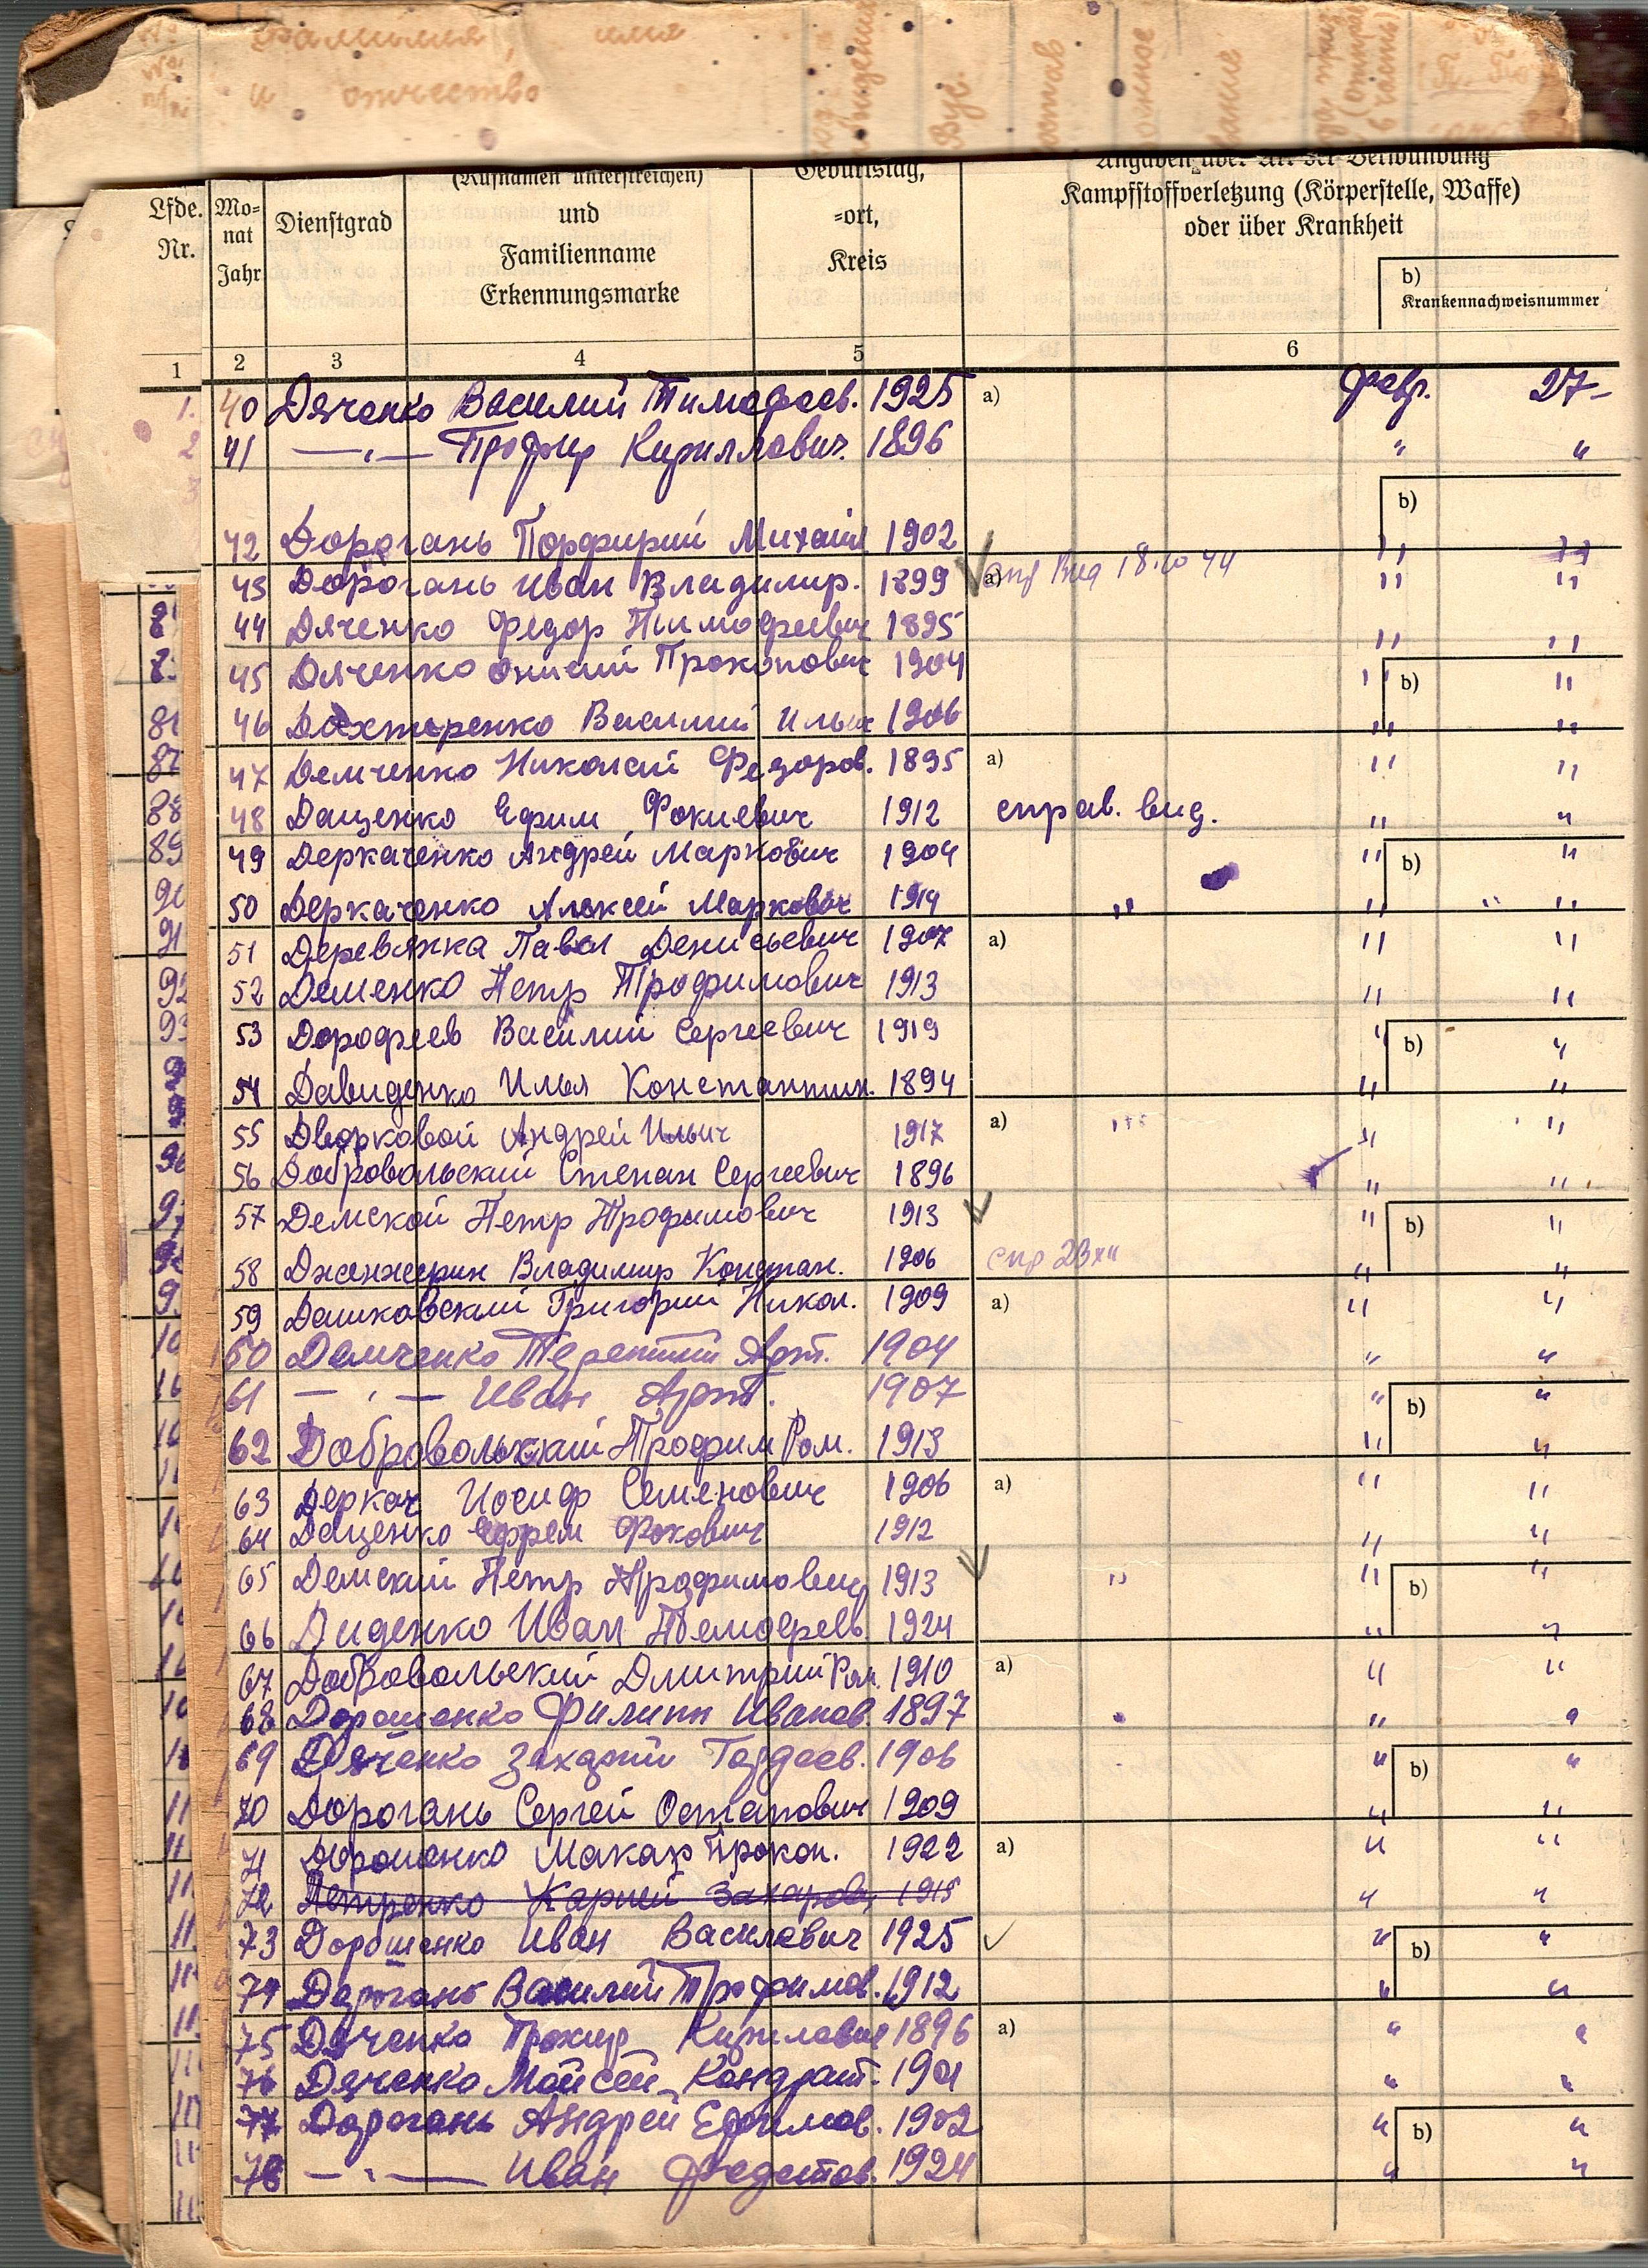 фамилия, имя
и отчество
Angaben über Art der Verwundung
(Rufnamen unterstreichen) Geburtstag,
Kampfstoffverletzung (Körperstelle, Waffe)
Lfde. Mo- Dienstgrad und =ort,
oder über Krankheit
Nr. nat Familienname Kreis
Jahr Erkennungsmarke
b)
Krankennachweisnummer
1 2 3 4 5 6
40 Дяченко Василий Тимофеев. 1925 a) февр. 27-
41 —„— Профир Кириллович. 1896 " "
b)
42 Дорогань Порфирий Михаил 1902 " "
43 Дорогань Иван Владимир. 1899 a) 18.10 44 " "
44 Дяченко Федор Тимофеевич 1895 " "
45 Дяченко Прокопович 1904 " b) "
46 Дахтеренко Василий Ильич 1906 " "
47 Демченко Николай Федоров. 1895 a) " "
48 Даценко Ефим Фокиевич 1912 справ. выд. " "
49 Деркаченко Андрей Маркович 1904 " b) "
50 Деркаченко Алексей Маркович 1914 " " " "
51 Деревянка Павел Денисьевич 1907 a) " "
52 Деменко Петр Трофимович 1913 " "
53 Дорофеев Василий Сергеевич 1919 " b) "
54 Давиденко Илья Константин. 1894 " "
55 Дворковой Андрей Ильич 1917 a) " "
56 Добровольский Степан Сергеевич 1896 " "
57 Демской Петр Трофимович 1913 " b) "
58 Дженжерин Владимир Констан. 1906 спр 23 XII " "
59 Дашковский Григорий Никол. 1909 a) " "
60 Демченко Терентий Арт. 1904 " "
61 —„— Иван Арт. 1907 " b) "
62 Добровольский Трофим Ром. 1913 " "
63 Деркач Иосиф Семенович 1906 a) " "
64 Даценко Ефрем Фокович 1912 " "
65 Демский Петр Трофимович 1913 " " b) "
66 Диденко Иван Тимофеев. 1924 " "
67 Добровольский Дмитрий Ром. 1910 a) " "
68 Дорошенко Филипп Иванов. 1897 " "
69 Дяченко Захарий Гордеев. 1906 " b) "
70 Дорогань Сергей Остапович 1909 " "
71 Дорошенко Макар Прокоп. 1922 a) " "
72 Петренко Карней Захаров. 1915 " "
73 Дорошенко Иван Василевич 1925 " b) "
74 Дорогань Василий Трофимов. 1912 " "
75 Дяченко Кирилович 1896 a) " "
76 Дяченко Мойсей Кондрат. 1901 " "
77 Дорогань Андрей Ефимов. 1902 " b) "
78 —„— Иван Федотов. 1924 " "